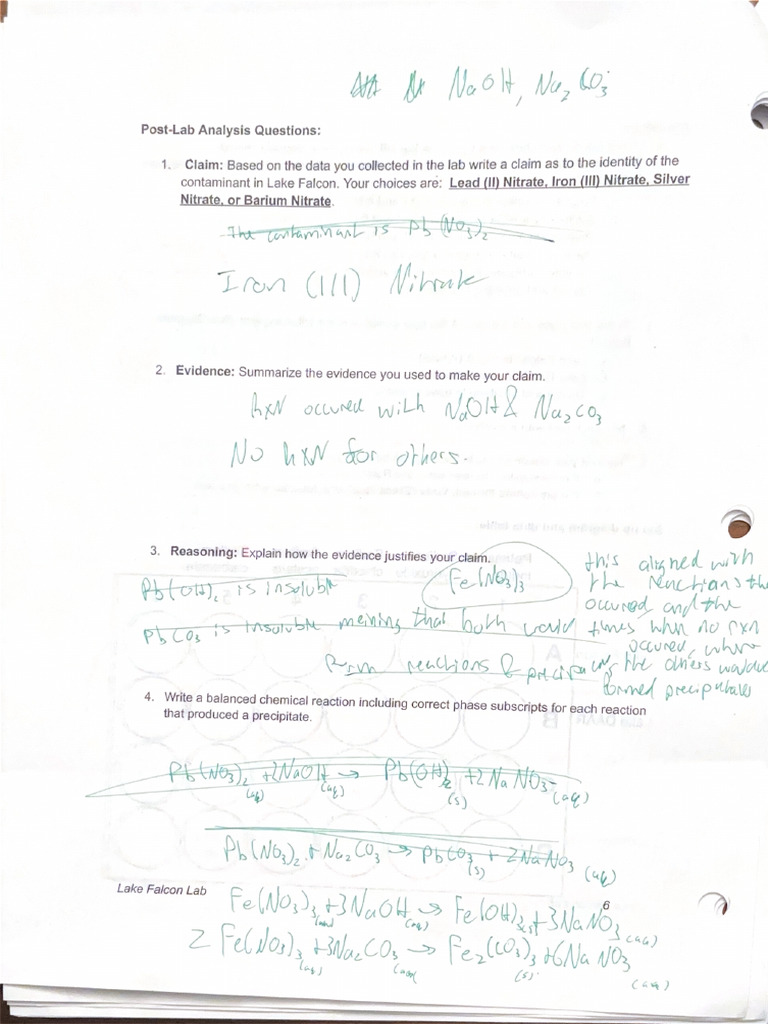 NaOH, Na2CO3
Post-Lab Analysis Questions:
1. Claim: Based on the data you collected in the lab write a claim as to the identity of the
contaminant in Lake Falcon. Your choices are: Lead (II) Nitrate, Iron (III) Nitrate, Silver
Nitrate, or Barium Nitrate.
The contaminant is Pb(NO3)2
Iron (III) Nitrate
2. Evidence: Summarize the evidence you used to make your claim.
RXN occured with NaOH & Na2CO3
No RXN for others.
3. Reasoning: Explain how the evidence justifies your claim.
Pb(OH)2 is insoluble
Fe(NO3)3
PbCO3 is insoluble meining that both would
form reactions &
this aligned with
the reactions tha
occured and the
times when no rxn
occured, where
the others would
formed precipitates
4. Write a balanced chemical reaction including correct phase subscripts for each reaction
that produced a precipitate.
Pb(NO3)2 + 2NaOH → Pb(OH)2 + 2NaNO3 (aq)
(aq) (aq) (s)
Pb(NO3)2 + Na2CO3 → PbCO3 + 2NaNO3 (aq)
(s)
Lake Falcon Lab
6
Fe(NO3)3 + 3NaOH → Fe(OH)3 + 3NaNO3 (aq)
(aq) (aq) (s)
2 Fe(NO3)3 + 3Na2CO3 → Fe2(CO3)3 + 6NaNO3
(aq) (aq) (s) (aq)